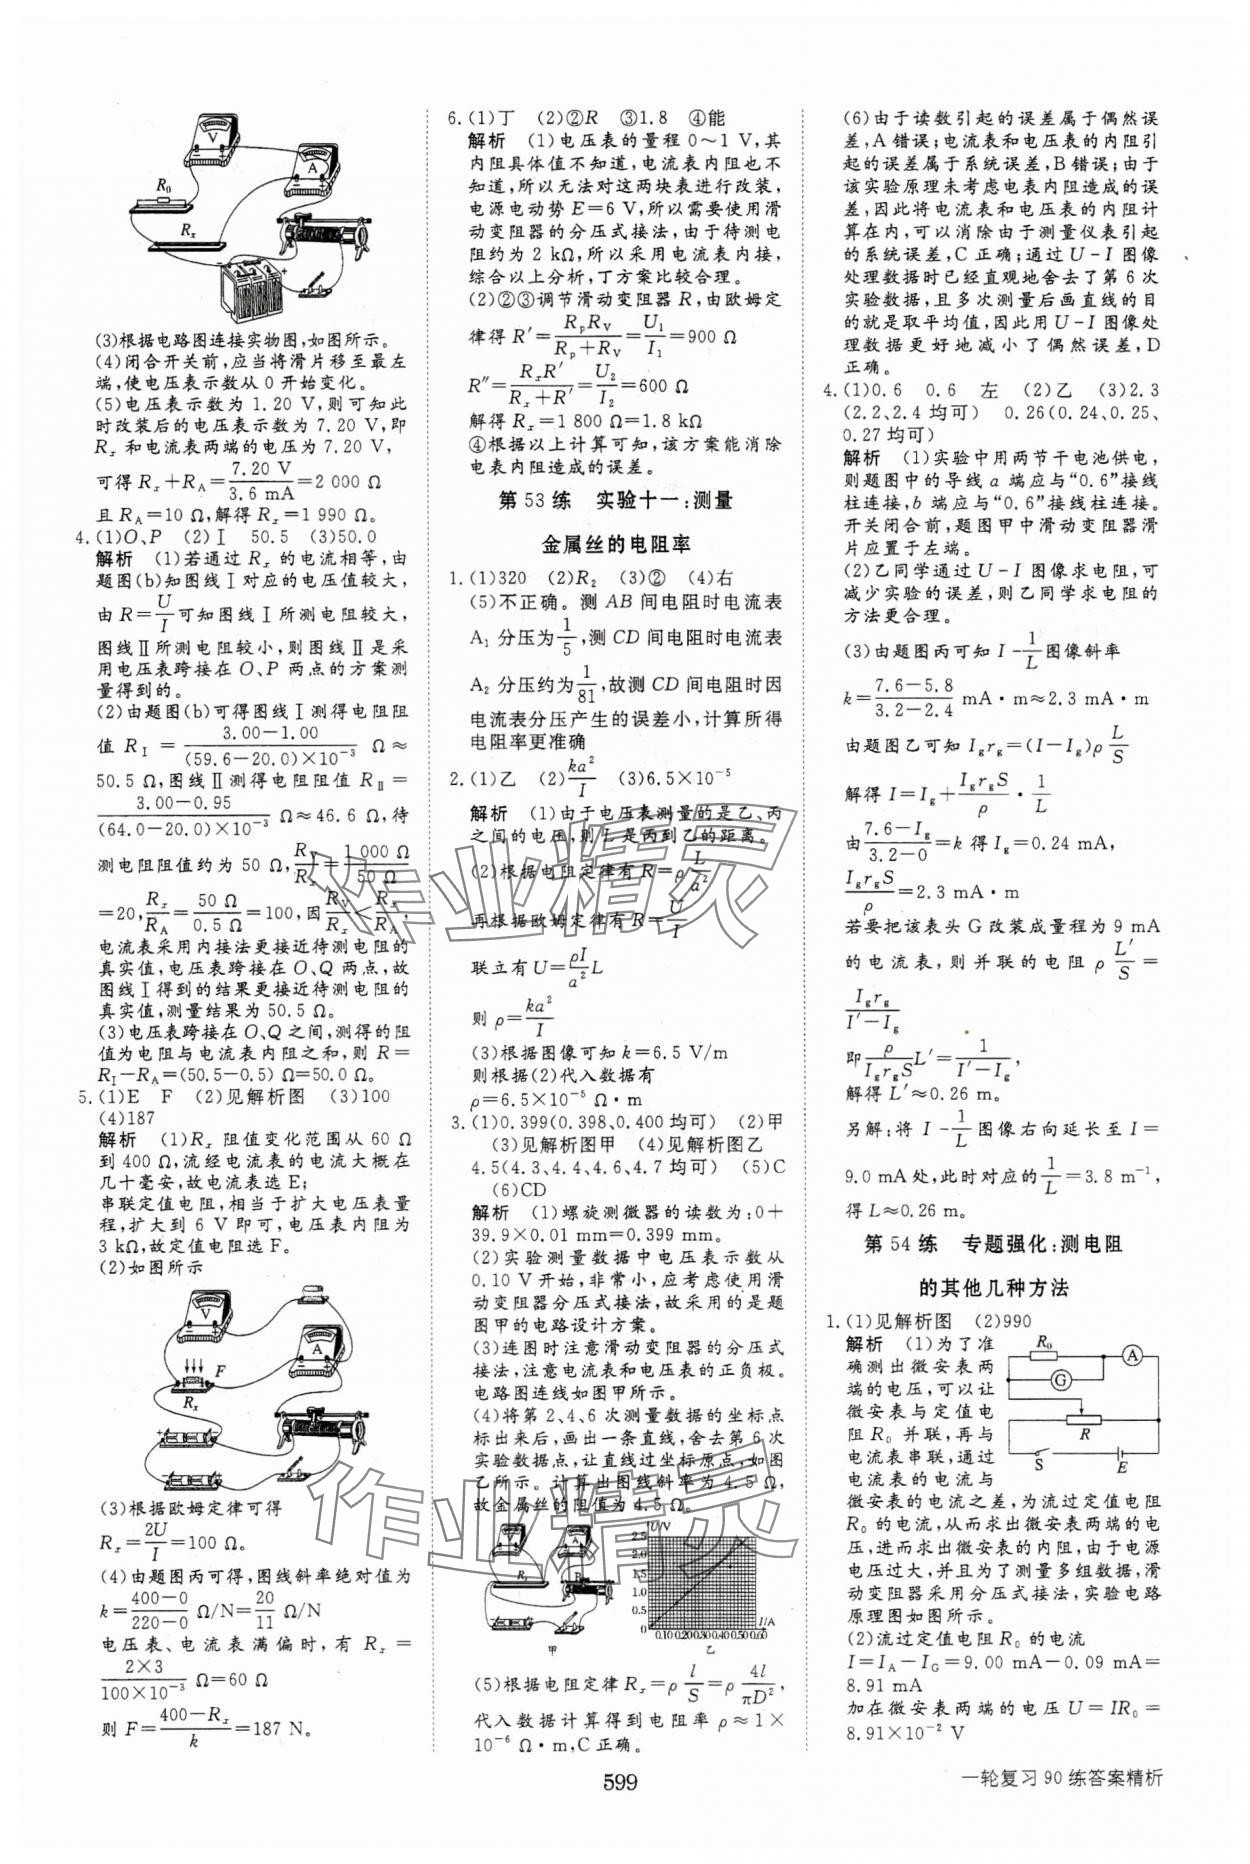 (3)根据电路图连接实物图,如图所示。
(4)闭合开关前,应当将滑片移至最左
端,使电压表示数从0开始变化。
(5)电压表示数为1.20 V,则可知此
时改装后的电压表示数为7.20 V,即
Rₓ和电流表两端的电压为7.20 V,
可得Rₓ+R_A=7.20 V/3.6 mA=2 000 Ω
且R_A=10 Ω,解得Rₓ=1 990 Ω。
4.(1)O、P (2)Ⅰ 50.5 (3)50.0
解析 (1)若通过Rₓ的电流相等,由
题图(b)知图线Ⅰ对应的电压值较大,
由R=U/I可知图线Ⅰ所测电阻较大,
图线Ⅱ所测电阻较小,则图线Ⅱ是采
用电压表跨接在O、P两点的方案测
量得到的。
(2)由题图(b)可得图线Ⅰ测得电阻阻
值R_Ⅰ=(3.00-1.00)/((59.6-20.0)×10⁻³) Ω≈
50.5 Ω,图线Ⅱ测得电阻阻值R_Ⅱ=
(3.00-0.95)/((64.0-20.0)×10⁻³) Ω≈46.6 Ω,待
测电阻阻值约为50 Ω,R_V/Rₓ=1 000 Ω/50 Ω
=20,Rₓ/R_A=50 Ω/0.5 Ω=100,因R_V/Rₓ<Rₓ/R_A,
电流表采用内接法更接近待测电阻的
真实值,电压表跨接在O、Q两点,故
图线Ⅰ得到的结果更接近待测电阻的
真实值,测量结果为50.5 Ω。
(3)电压表跨接在O、Q之间,测得的阻
值为电阻与电流表内阻之和,则R=
R_Ⅰ-R_A=(50.5-0.5) Ω=50.0 Ω。
5.(1)E F (2)见解析图 (3)100
(4)187
解析 (1)Rₓ阻值变化范围从60 Ω
到400 Ω,流经电流表的电流大概在
几十毫安,故电流表选E;
串联定值电阻,相当于扩大电压表量
程,扩大到6 V即可,电压表内阻为
3 kΩ,故定值电阻选F。
(2)如图所示
(3)根据欧姆定律可得
Rₓ=2U/I=100 Ω。
(4)由题图丙可得,图线斜率绝对值为
k=(400-0)/(220-0) Ω/N=20/11 Ω/N
电压表、电流表满偏时,有Rₓ=
2×3/(100×10⁻³) Ω=60 Ω
则F=(400-Rₓ)/k=187 N。
6.(1)丁 (2)②R ③1.8 ④能
解析 (1)电压表的量程0～1 V,其
内阻具体值不知道,电流表内阻也不
知道,所以无法对这两块表进行改装,
电源电动势E=6 V,所以需要使用滑
动变阻器的分压式接法,由于待测电
阻约为2 kΩ,所以采用电流表内接,
综合以上分析,丁方案比较合理。
(2)②③调节滑动变阻器R,由欧姆定
律得R′=R_pR_V/(R_p+R_V)=U₁/I₁=900 Ω
R″=RₓR′/(Rₓ+R′)=U₂/I₂=600 Ω
解得Rₓ=1 800 Ω=1.8 kΩ
④根据以上计算可知,该方案能消除
电表内阻造成的误差。
第53练 实验十一:测量
金属丝的电阻率
1.(1)320 (2)R₂ (3)② (4)右
(5)不正确。测AB间电阻时电流表
A₁分压为1/5,测CD间电阻时电流表
A₂分压约为1/81,故测CD间电阻时因
电流表分压产生的误差小,计算所得
电阻率更准确
2.(1)乙 (2)ka²/I (3)6.5×10⁻⁵
解析 (1)由于电压表测量的是乙、丙
之间的电压,则L是丙到乙的距离。
(2)根据电阻定律有R=ρL/a²
再根据欧姆定律有R=U/I
联立有U=(ρI/a²)L
则ρ=ka²/I
(3)根据图像可知k=6.5 V/m
则根据(2)代入数据有
ρ=6.5×10⁻⁵ Ω·m
3.(1)0.399(0.398、0.400均可) (2)甲
(3)见解析图甲 (4)见解析图乙
4.5(4.3、4.4、4.6、4.7均可) (5)C
(6)CD
解析 (1)螺旋测微器的读数为:0+
39.9×0.01 mm=0.399 mm。
(2)实验测量数据中电压表示数从
0.10 V开始,非常小,应考虑使用滑
动变阻器分压式接法,故采用的是题
图甲的电路设计方案。
(3)连图时注意滑动变阻器的分压式
接法,注意电流表和电压表的正负极。
电路图连线如图甲所示。
(4)将第2、4、6次测量数据的坐标点
标出来后,画出一条直线,舍去第6次
实验数据点,让直线过坐标原点,如图
乙所示。计算出图线斜率为4.5 Ω,
故金属丝的阻值为4.5 Ω。
U/V
2.5
2.0
1.5
1.0
0.5
0 0.10 0.20 0.30 0.40 0.50 0.60 I/A
甲 乙
(5)根据电阻定律Rₓ=ρl/S=ρ4l/πD²,
代入数据计算得到电阻率ρ≈1×
10⁻⁶ Ω·m,C正确。
(6)由于读数引起的误差属于偶然误
差,A错误;电流表和电压表的内阻引
起的误差属于系统误差,B错误;由于
该实验原理未考虑电表内阻造成的误
差,因此将电流表和电压表的内阻计
算在内,可以消除由于测量仪表引起
的系统误差,C正确;通过U-I图像
处理数据时已经直观地舍去了第6次
实验数据,且多次测量后画直线的目
的就是取平均值,因此用U-I图像处
理数据更好地减小了偶然误差,D
正确。
4.(1)0.6 0.6 左 (2)乙 (3)2.3
(2.2、2.4均可) 0.26(0.24、0.25、
0.27均可)
解析 (1)实验中用两节干电池供电,
则题图中的导线a端应与“0.6”接线
柱连接,b端应与“0.6”接线柱连接。
开关闭合前,题图甲中滑动变阻器滑
片应置于左端。
(2)乙同学通过U-I图像求电阻,可
减少实验的误差,则乙同学求电阻的
方法更合理。
(3)由题图丙可知I-1/L图像斜率
k=(7.6-5.8)/(3.2-2.4) mA·m≈2.3 mA·m
由题图乙可知I_g r_g=(I-I_g)ρL/S
解得I=I_g+(I_g r_g S/ρ)·1/L
由(7.6-I_g)/(3.2-0)=k得I_g=0.24 mA,
I_g r_g S/ρ=2.3 mA·m
若要把该表头G改装成量程为9 mA
的电流表,则并联的电阻ρL′/S=
I_g r_g/(I′-I_g)
即ρ/(I_g r_g S)L′=1/(I′-I_g),
解得L′≈0.26 m。
另解:将I-1/L图像右向延长至I=
9.0 mA处,此时对应的1/L=3.8 m⁻¹,
得L≈0.26 m。
第54练 专题强化:测电阻
的其他几种方法
1.(1)见解析图 (2)990
解析 (1)为了准
确测出微安表两
端的电压,可以让
微安表与定值电
阻R₀并联,再与
电流表串联,通过
电流表的电流与
微安表的电流之差,为流过定值电阻
R₀的电流,从而求出微安表两端的电
压,进而求出微安表的内阻,由于电源
电压过大,并且为了测量多组数据,滑
动变阻器采用分压式接法,实验电路
原理图如图所示。
(2)流过定值电阻R₀的电流
I=I_A-I_G=9.00 mA-0.09 mA=
8.91 mA
加在微安表两端的电压U=IR₀=
8.91×10⁻² V
599
一轮复习90练答案精析
作业精灵
作业精灵